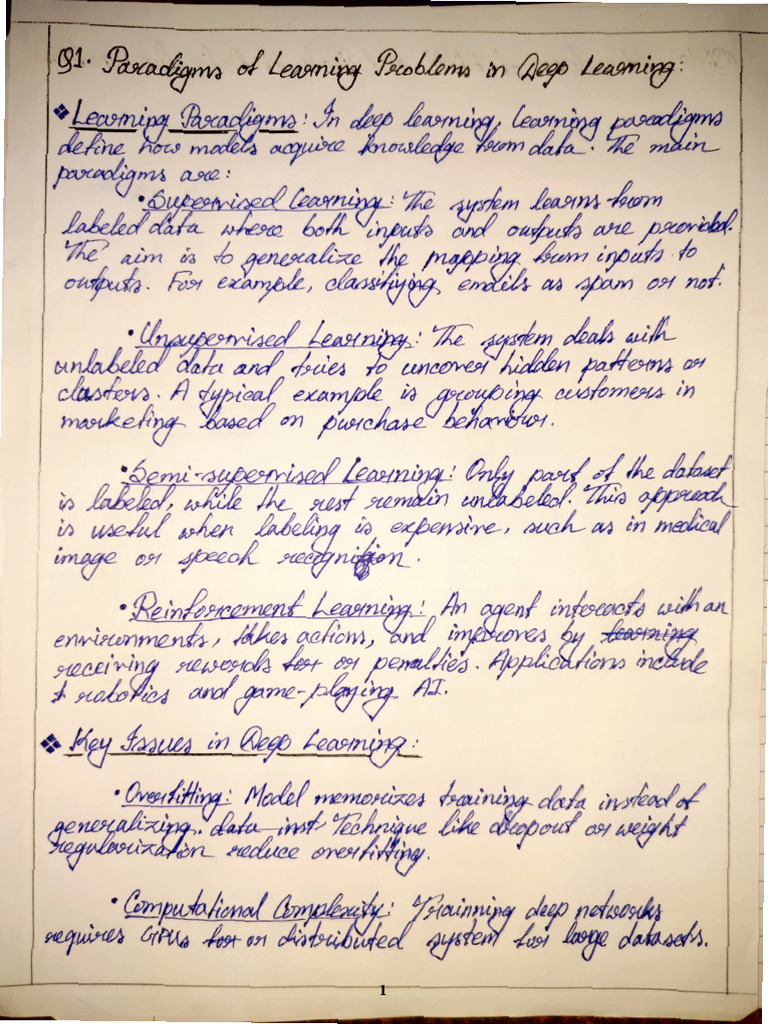 Q1. Paradigms of Learning Problems in Deep Learning:
❖ Learning Paradigms: In deep learning, learning paradigms
define how models acquire knowledge from data. The main
paradigms are:
• Supervised Learning: The system learns from
labeled data where both inputs and outputs are provided.
The aim is to generalize the mapping from inputs to
outputs. For example, classifiying emails as spam or not.
• Unpupervised Learning: The system deals with
unlabeled data and tries to uncover hidden patterns or
clusters. A typical example is grouping customers in
marketing based on purchase behaviour.
• Semi-supervised Learning: Only part of the dataset
is labeled, while the rest remain unlabeled. This approach
is useful when labeling is expensive, such as in medical
image or speech recognition.
• Reinforcement Learning: An agent interacts with an
environments, takes actions, and improves by learning
receiving rewords for or penalties. Applications include
robotics and game-playing AI.
❖ Key Issues in Deep Learning:
• Overfitting: Model memorizes training data instead of
generalizing. data inst Technique like dropout or weight
regularization reduce overfitting.
• Computational Complexity: Trainning deep networks
requires GPUs for or distributed system for large datasets.
1